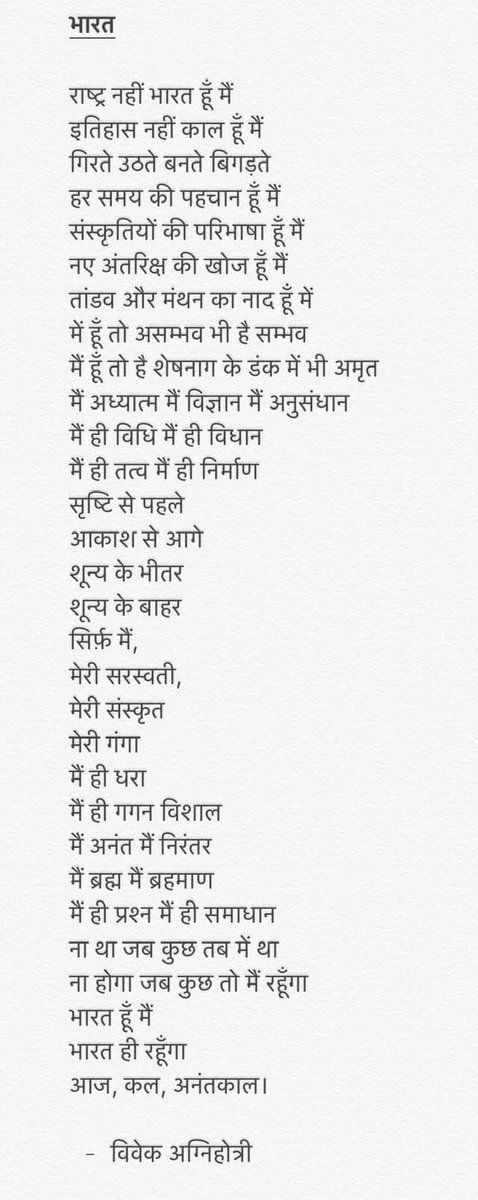 भारत
राष्ट्र नहीं भारत हूँ मैं
इतिहास नहीं काल हूँ मैं
गिरते उठते बनते बिगड़ते
हर समय की पहचान हूँ मैं
संस्कृतियों की परिभाषा हूँ मैं
नए अंतरिक्ष की खोज हूँ मैं
तांडव और मंथन का नाद हूँ में
में हूँ तो असम्भव भी है सम्भव
मैं हूँ तो है शेषनाग के डंक में भी अमृत
मैं अध्यात्म मैं विज्ञान मैं अनुसंधान
मैं ही विधि मैं ही विधान
मैं ही तत्व मैं ही निर्माण
सृष्टि से पहले
आकाश से आगे
शून्य के भीतर
शून्य के बाहर
सिर्फ़ मैं,
मेरी सरस्वती,
मेरी संस्कृत
मेरी गंगा
मैं ही धरा
मैं ही गगन विशाल
मैं अनंत मैं निरंतर
मैं ब्रह्म मैं ब्रहमाण
मैं ही प्रश्न मैं ही समाधान
ना था जब कुछ तब में था
ना होगा जब कुछ तो मैं रहूँगा
भारत हूँ मैं
भारत ही रहूँगा
आज, कल, अनंतकाल।
- विवेक अग्निहोत्री